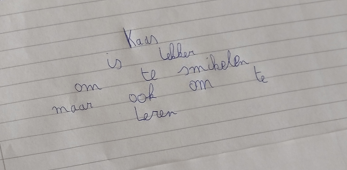 Kaas
is lekker
om te smikelen
maar ook om te
leren